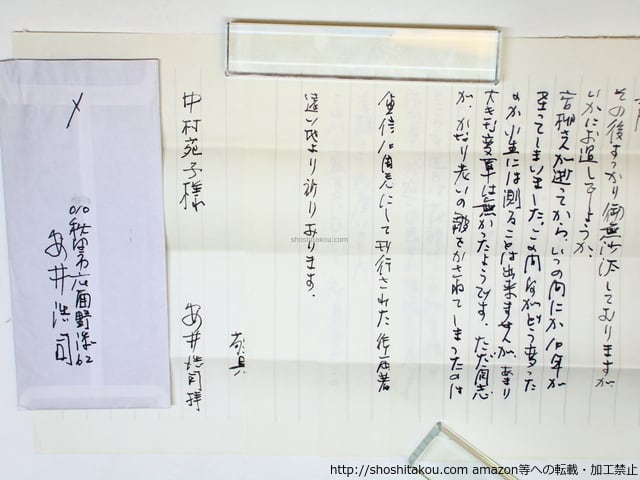 その後すっかり御無沙汰しておりますが
いかにお過しでしょうか。
高柳さんが逝ってから、いつの間にか10年が
経ってしまいました。この間何がどう変った
のか小生には測ることは出来ませんが、あまり
大きな変革は無かったようです。ただ同志
が、かなり老いの齢をかさねてしまったのは
10周忌にして刊行された
遠い地より祈りあります。
敬具
安井浩司拝
中村苑子様
〆
010秋田市広面野添62
安井浩司
shoshitakou.com
http://shoshitakou.com amazon等への転載・加工禁止